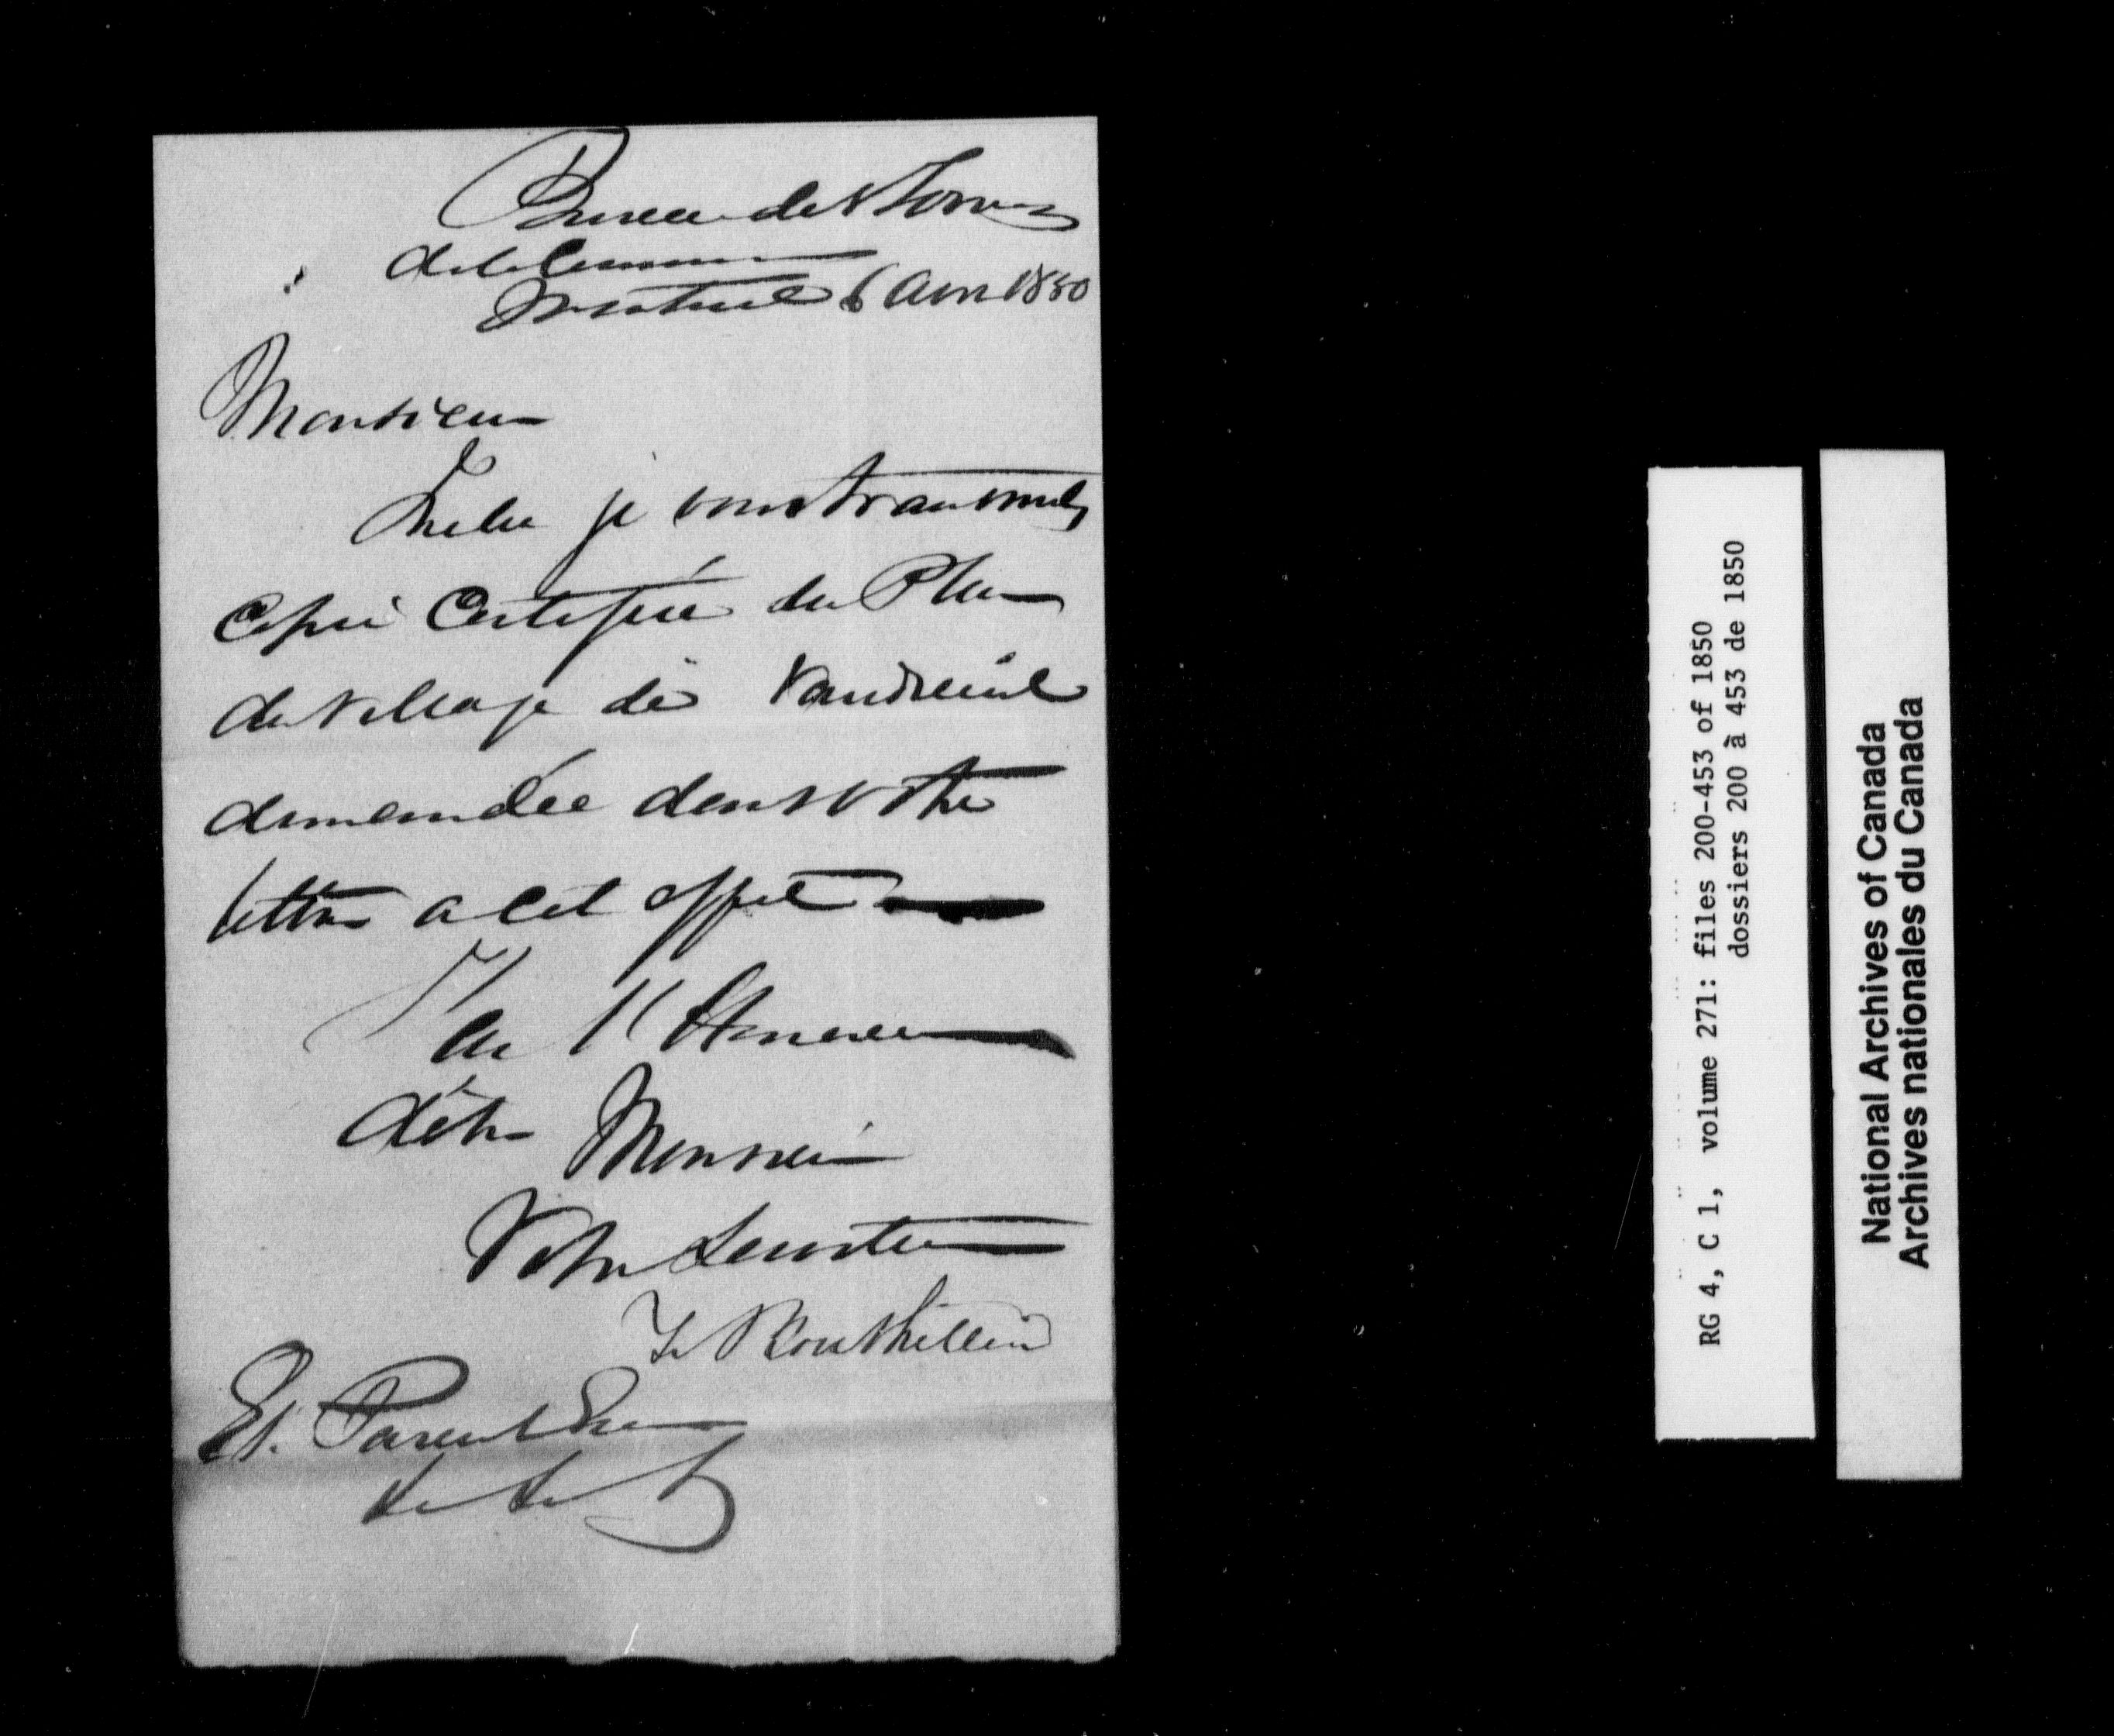 Bureau des Terres
de la Couronne
Montreal 6 Avr 1850
Monsieur
Inclu je vous transmets
Copie Certifiée du Plan
du Village de Vaudreuil
demandée dans votre
lettre a cet effet
J'ai l'Honneur
d'être Monsieur
Votre Serviteur
T Bouthillier
Et. Parent Ecr
RG 4, C 1, volume 271: files 200-453 of 1850
dossiers 200 à 453 de 1850
National Archives of Canada
Archives nationales du Canada